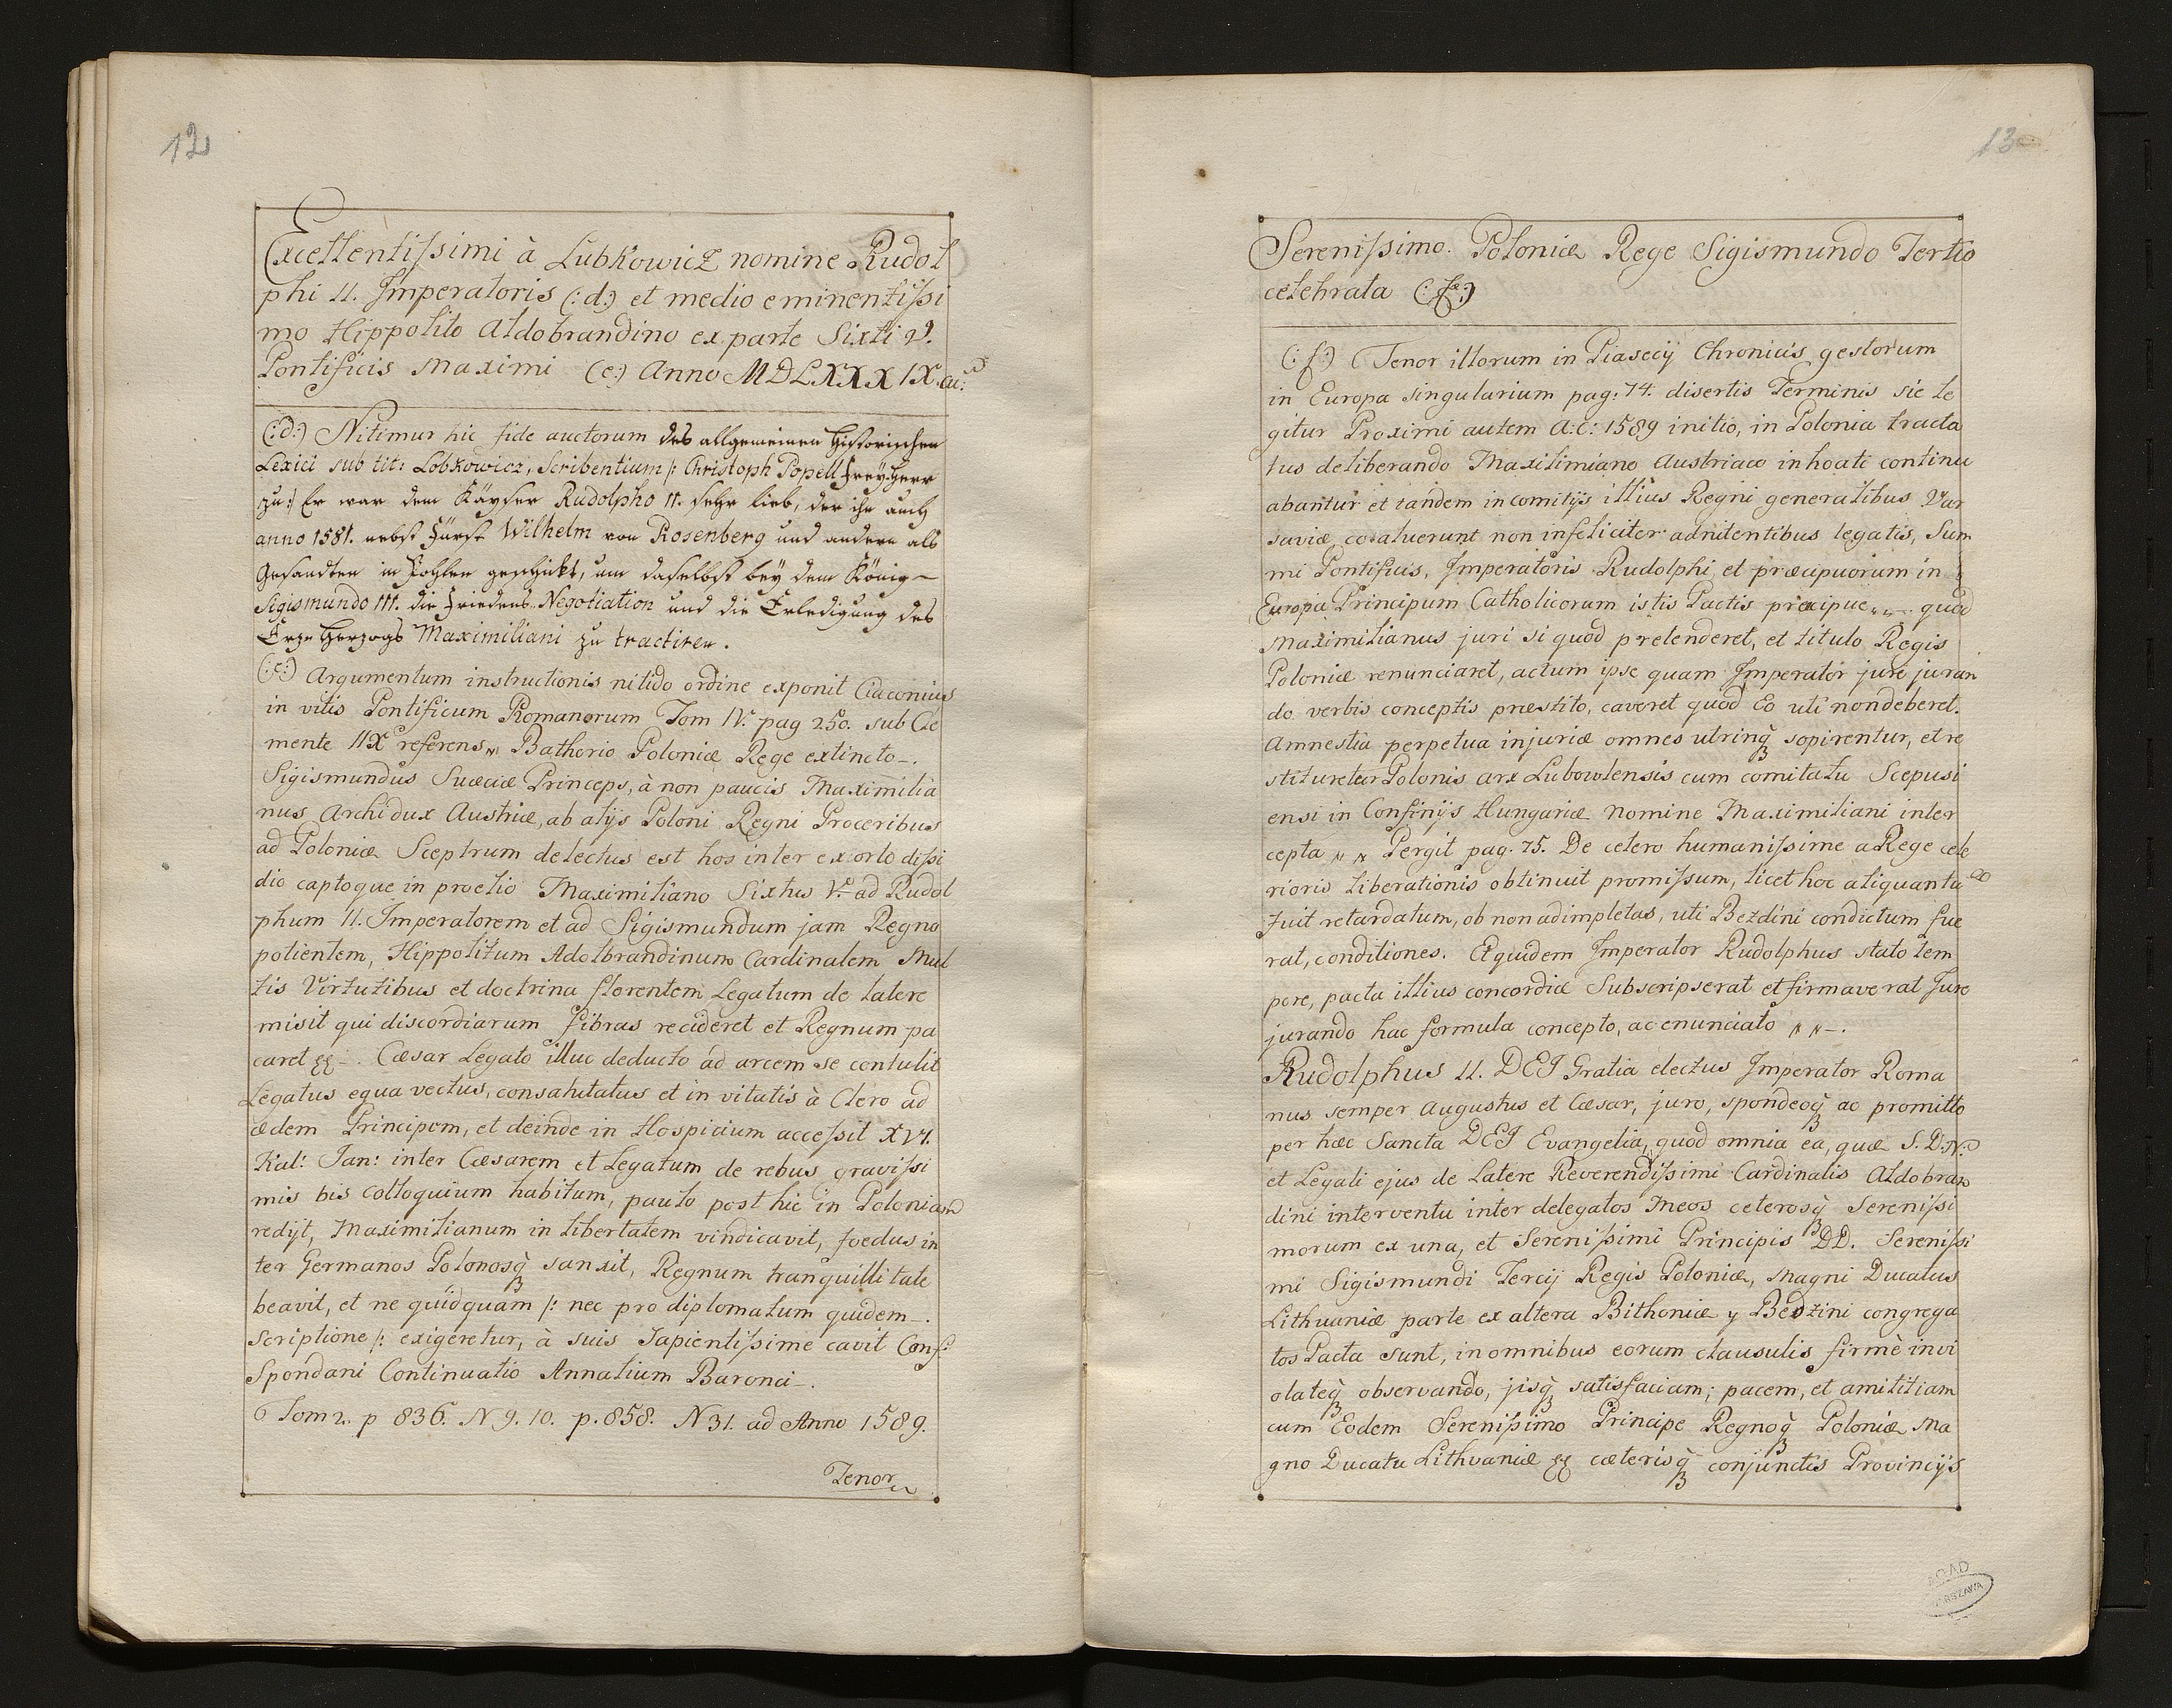 12
Excellentissimi à Lubkowicz nomine Rudol
phi II. Imperatoris (:d:) et medio eminentissi
mo Hippolito Aldobrandino ex parte Sixti V.
Pontificis Maximi (e:) Anno MDLXXXIX. cu:
(:d:) Nitimur hic fide auctorum des allgemeinen Historischen
Lexici sub tit: Lobkowicz, Scribentium /: Christoph Popell Freyherr
zu :/ Er war dem Käyser Rudolpho II. sehr lieb, der ihn auch
anno 1581. nebst Fürst Wilhelm von Rosenberg und andern als
Gesandten in Pohlen geschickt, um daselbst bey dem König
Sigismundo III. die Friedens-Negotiation und die Erledigung des
Ertz Herzogs Maximiliani zu tractiren.
(:e:) Argumentum instructionis nitido ordine exponit Ciaconius
in vitis Pontificum Romanorum Tom IV. pag 250. sub Cle
mente IIX referens Bathorio Poloniæ Rege extincto -.
Sigismundus Sueciæ Princeps, à non paucis Maximilia
nus Archidux Austriæ, ab alijs Poloni Regni Proceribus
ad Poloniæ Sceptrum delectus est hos inter exorto dissi
dio captoque in proelio Maximiliano Sixtus V. ad Rudol
phum II. Imperatorem et ad Sigismundum jam Regno
potientem, Hippolitum Adolbrandinum Cardinalem Mul
tis Virtutibus et doctrina florentem Legatum de latere
misit qui discordiarum fibras recideret et Regnum pa
caret &&-. Cæsar Legato illuc deducto ad arcem se contulit
Legatus equa vectus, consalutatus et in vitatis à Clero ad
ædem Principem, et deinde in Hospicium accessit XVI.
Kal: Jan: inter Cæsarem et Legatum de rebus gravissi
mis bis colloquium habitum, paulo post hic in Poloniam
redijt, Maximilianum in libertatem vindicavit, foedus in
ter Germanos Polonosq́ sanxit, Regnum tranquillitate
beavit, et ne quidquam /: nec pro diplomatum quidem -.
scriptione /: exigeretur, à suis Sapientissime cavit Conf:
Spondani Continuatio Annalium Baronci -.
Tom 2. p 836. N 9. 10. p. 858. N 31. ad Anno 1589.
Tenor
13
Serenissimo Poloniæ Rege Sigismundo Tertio
celebrata (:f:)
(:f:) Tenor illorum in Piasecij Chronicis gestorum
in Europa singularium pag: 74. disertis Terminis sic le
gitur Proximi autem A: C: 1589 initio, in Polonia tracta
tus deliberando Maxilimiano Austriaco inhoati continu
abantur et tandem in comitijs illius Regni generalibus Var
saviæ coaluerunt non infeliciter adnitentibus legatis, Sum
mi Pontificis, Imperatoris Rudolphi et præcipuorum in
Europa Principum Catholicorum istis Pactis præcipue quod
Maximilianus juri si quod prelenderet, et titulo Regis
Poloniæ renunciaret, actum ipse quam Imperator jure juran
do verbis conceptis præstito, caveret quod Eo uti non deberet.
Amnestia perpetua injuriæ omnes utrinq́ sopirentur, et re
stitueretur Polonis arx Lubowlensis cum comitatu Scepusi
ensi in Confinijs Hungariæ nomine Maximiliani inter
cepta Pergit pag. 75. De cetero humanissime a Rege cele
rioris liberationis obtinuit promissum, licet hoc aliquantu
fuit retardatum, ob non adimpletas, uti Bezdini condictum fue
rat, conditiones. Et quidem Imperator Rudolphus stato tem
pore, pacta illius concordiæ Subscripserat et firmaverat Jure
jurando hac formula concepto, ac enunciato -.
Rudolphus II. DEI Gratia electus Imperator Roma
nus semper Augustus et Cæsar, juro, spondeoq́ ac promitto
per hæc Sancta DEI Evangelia, quod omnia ea, quæ S. D. N.
et Legati ejus de Latere Reverendissimi Cardinalis Aldobran
dini interventu inter delegatos Meos ceterosq́ Serenissi
morum ex una, et Serenissimi Principis DD. Serenissi
mi Sigismundi Tercij Regis Poloniæ, Magni Ducatus
Lithuaniæ parte ex altera Bithoniæ y Bedzini congrega
tos Pacta sunt, in omnibus eorum clausulis firmè invi
olateq́ observando, jisq́ satisfaciam; pacem, et amititiam
cum Eodem Serenissimo Principe Regnoq́ Poloniæ Ma
gno Ducatu Lithvaniæ && cæterisq́ conjunctis Provincijs
AGAD
WARSZAWA